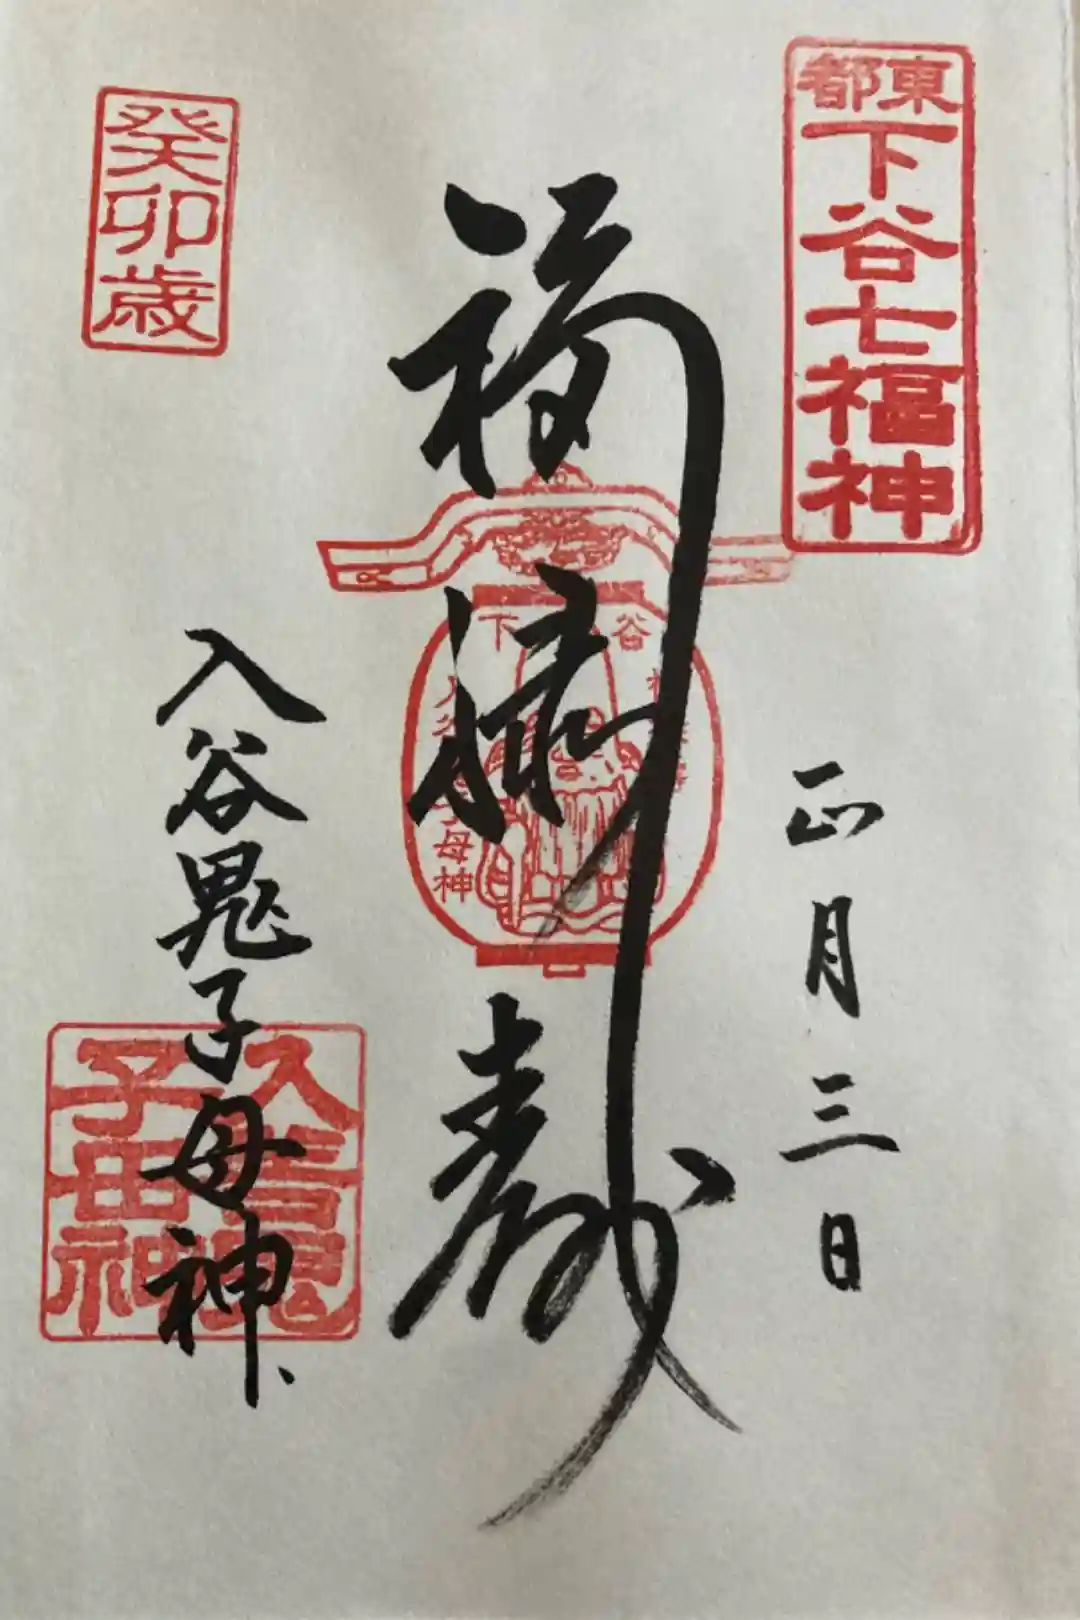 東都
下谷七福神
正月三日
福禄寿
下谷
子母神
入谷鬼子母神
入谷鬼子母神
癸卯歳